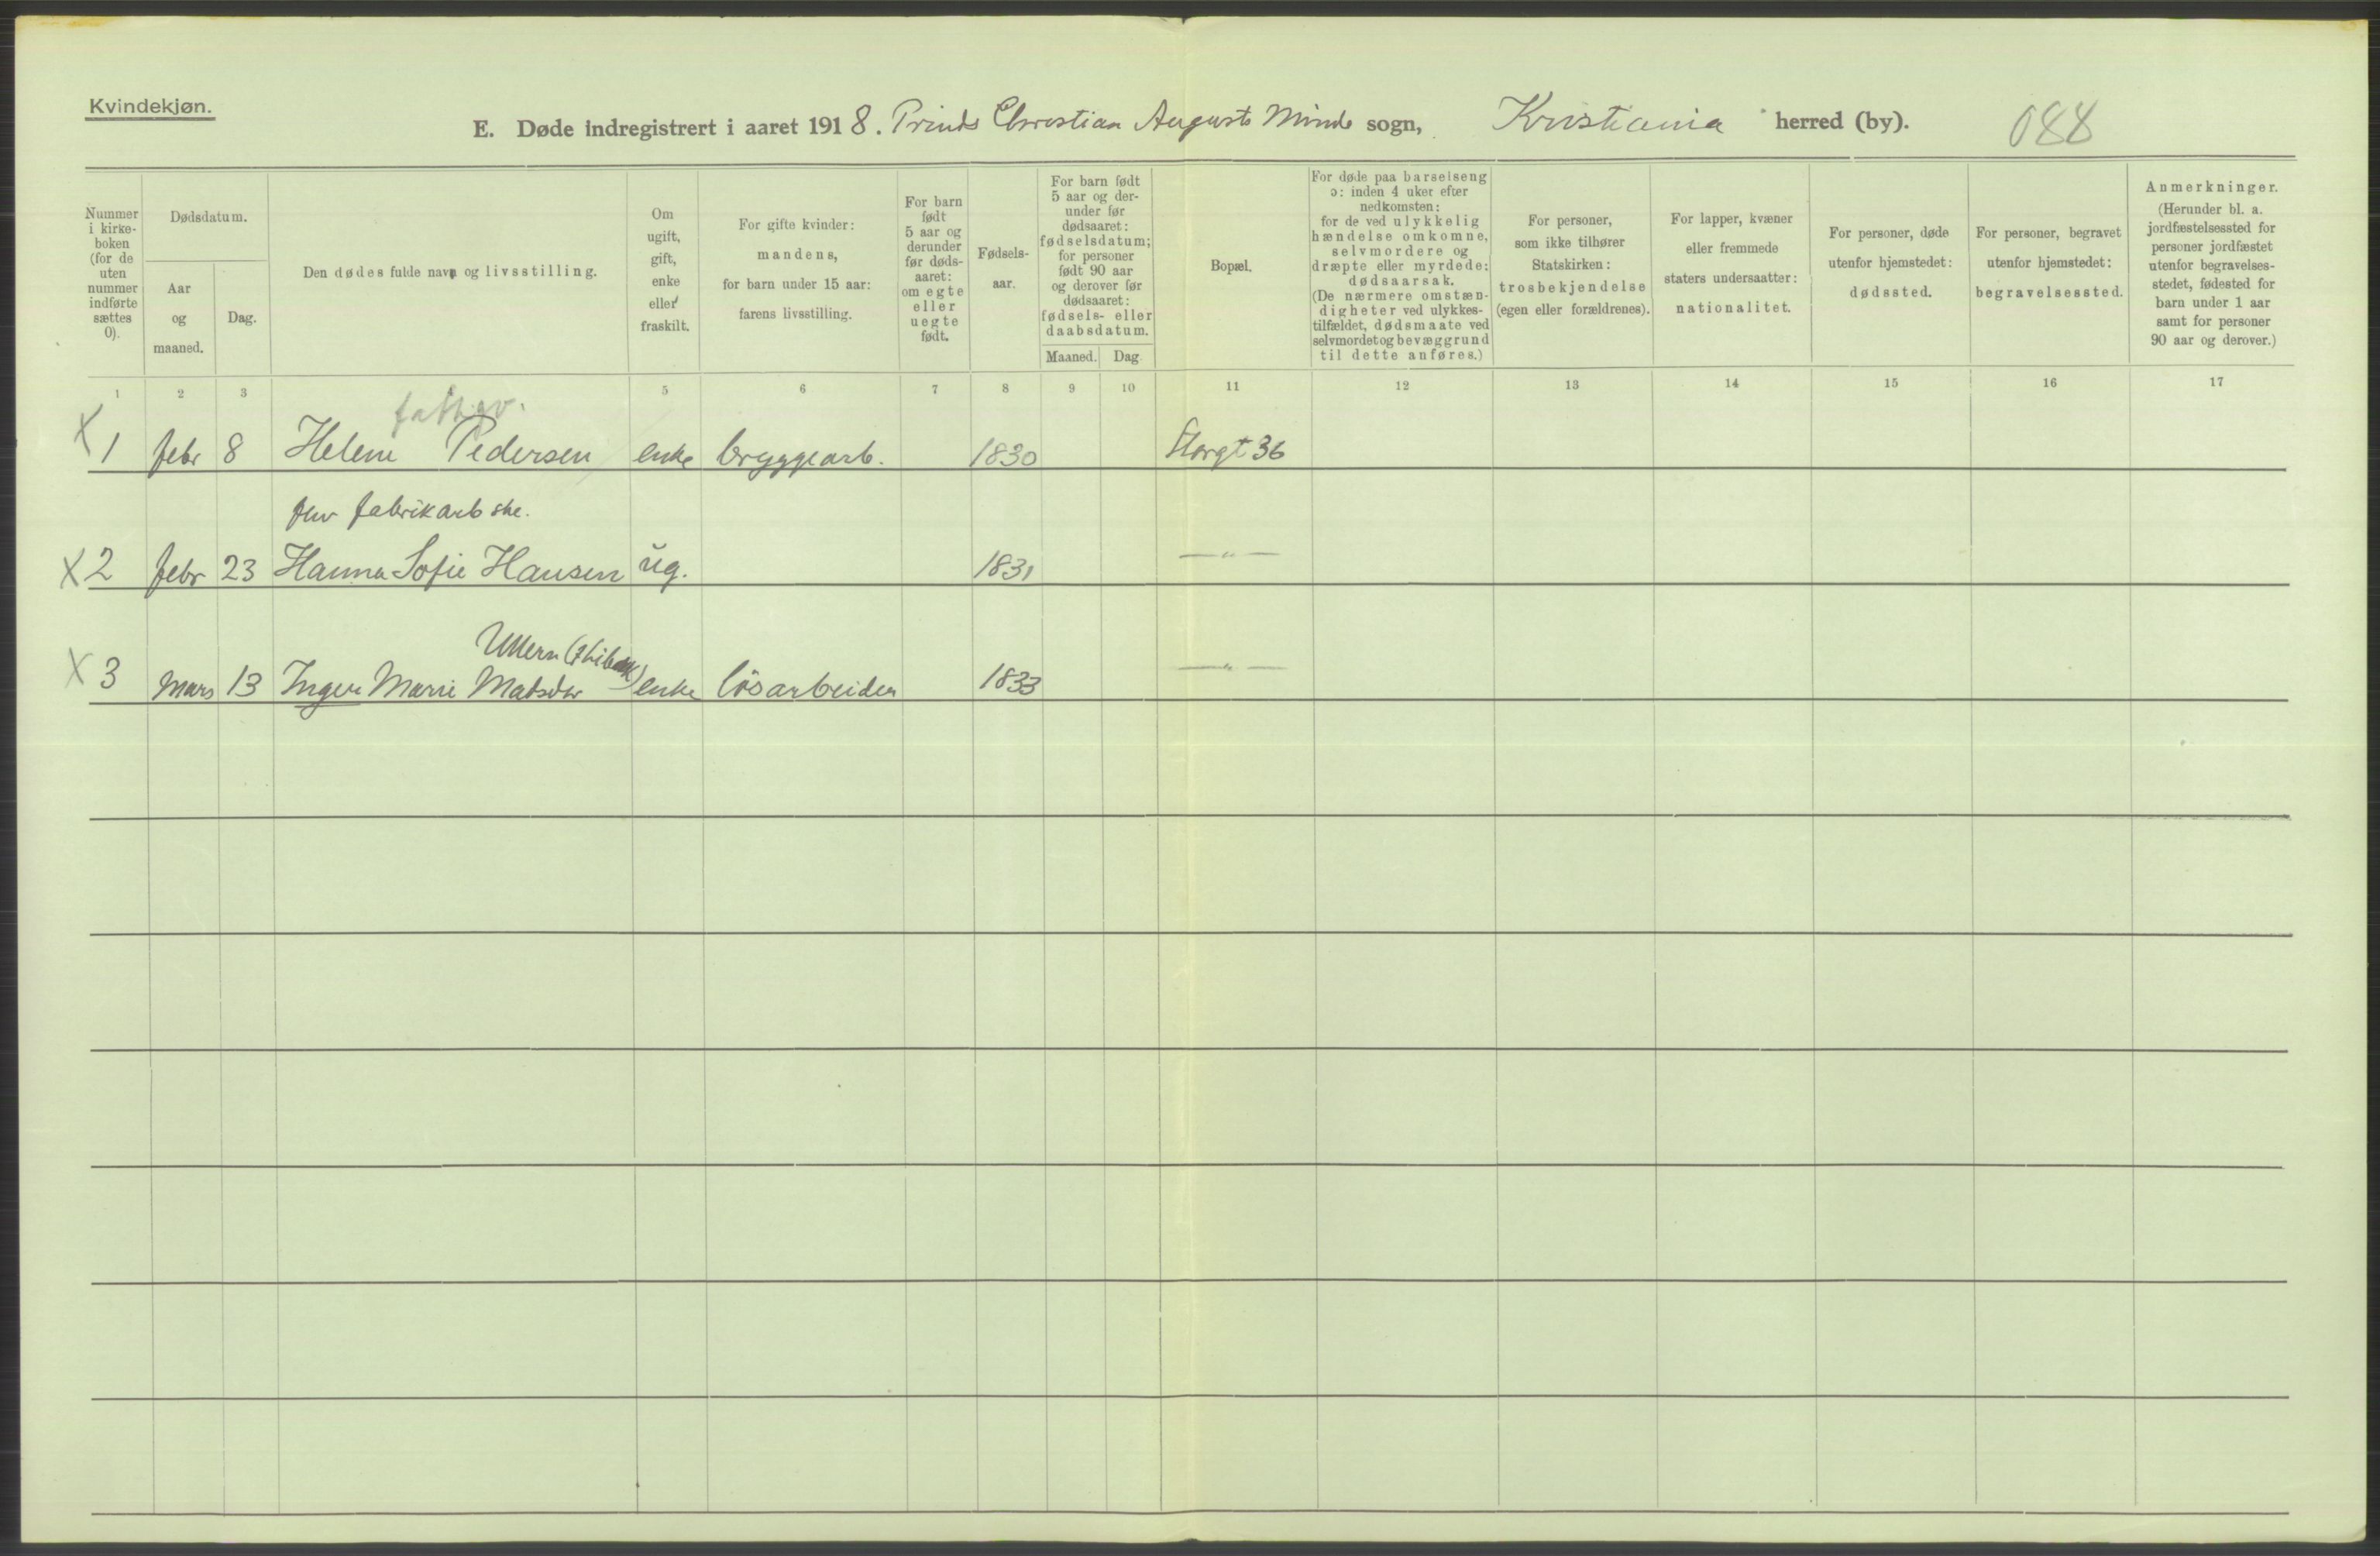 Kvindekjøn.
E. Døde indregistrert i aaret 1918. Prinds Christian Augusts Minde sogn, Kristiania herred (by). 088
Nummer i kirke-boken (for de uten nummer indførte sættes 0).
Dødsdatum.
Aar og maaned.
Dag.
Den dødes fulde navn og livsstilling.
Om ugift, gift, enke eller fraskilt.
For gifte kvinder: mandens, for barn under 15 aar: farens livsstilling.
For barn født 5 aar og derunder før døds-aaret: om egte eller uegte født.
Fødsels-aar.
For barn født 5 aar og der-under før dødsaaret: fødselsdatum; for personer født 90 aar og derover før dødsaaret: fødsels- eller daabsdatum.
Maaned. Dag
Bopæl.
For døde paa barselseng ɔ: inden 4 uker efter nedkomsten: for de ved ulykkelig hændelse omkomne, selvmordere og dræpte eller myrdede: dødsaarsak. (De nærmere omstæn-digheter ved ulykkes-tilfældet, dødsmaate ved selvmordet og bevæggrund til dette anføres.)
For personer, som ikke tilhører Statskirken: trosbekjendelse (egen eller forældrenes).
For lapper, kvæner eller fremmede staters undersaatter: nationalitet.
For personer, døde utenfor hjemstedet: dødssted.
For personer, begravet utenfor hjemstedet: begravelsessted.
Anmerkninger. (Herunder bl. a. jordfæstelsessted for personer jordfæstet utenfor begravelses-stedet, fødested for barn under 1 aar samt for personer 90 aar og derover.)
1 2 3 5 6 7 8 9 10 11 12 13 14 15 16 17
fattigv.
X 1 febr 8 Helene Pedersen enke bryggearb. 1830 Storgt 36
fhv fabrikarbske.
X 2 febr 23 Hanna Sofie Hansen ug. 1831 —"—
Ullern
X 3 Mars 13 Inger Marie Matsdtr enke løsarbeider 1833 —"—